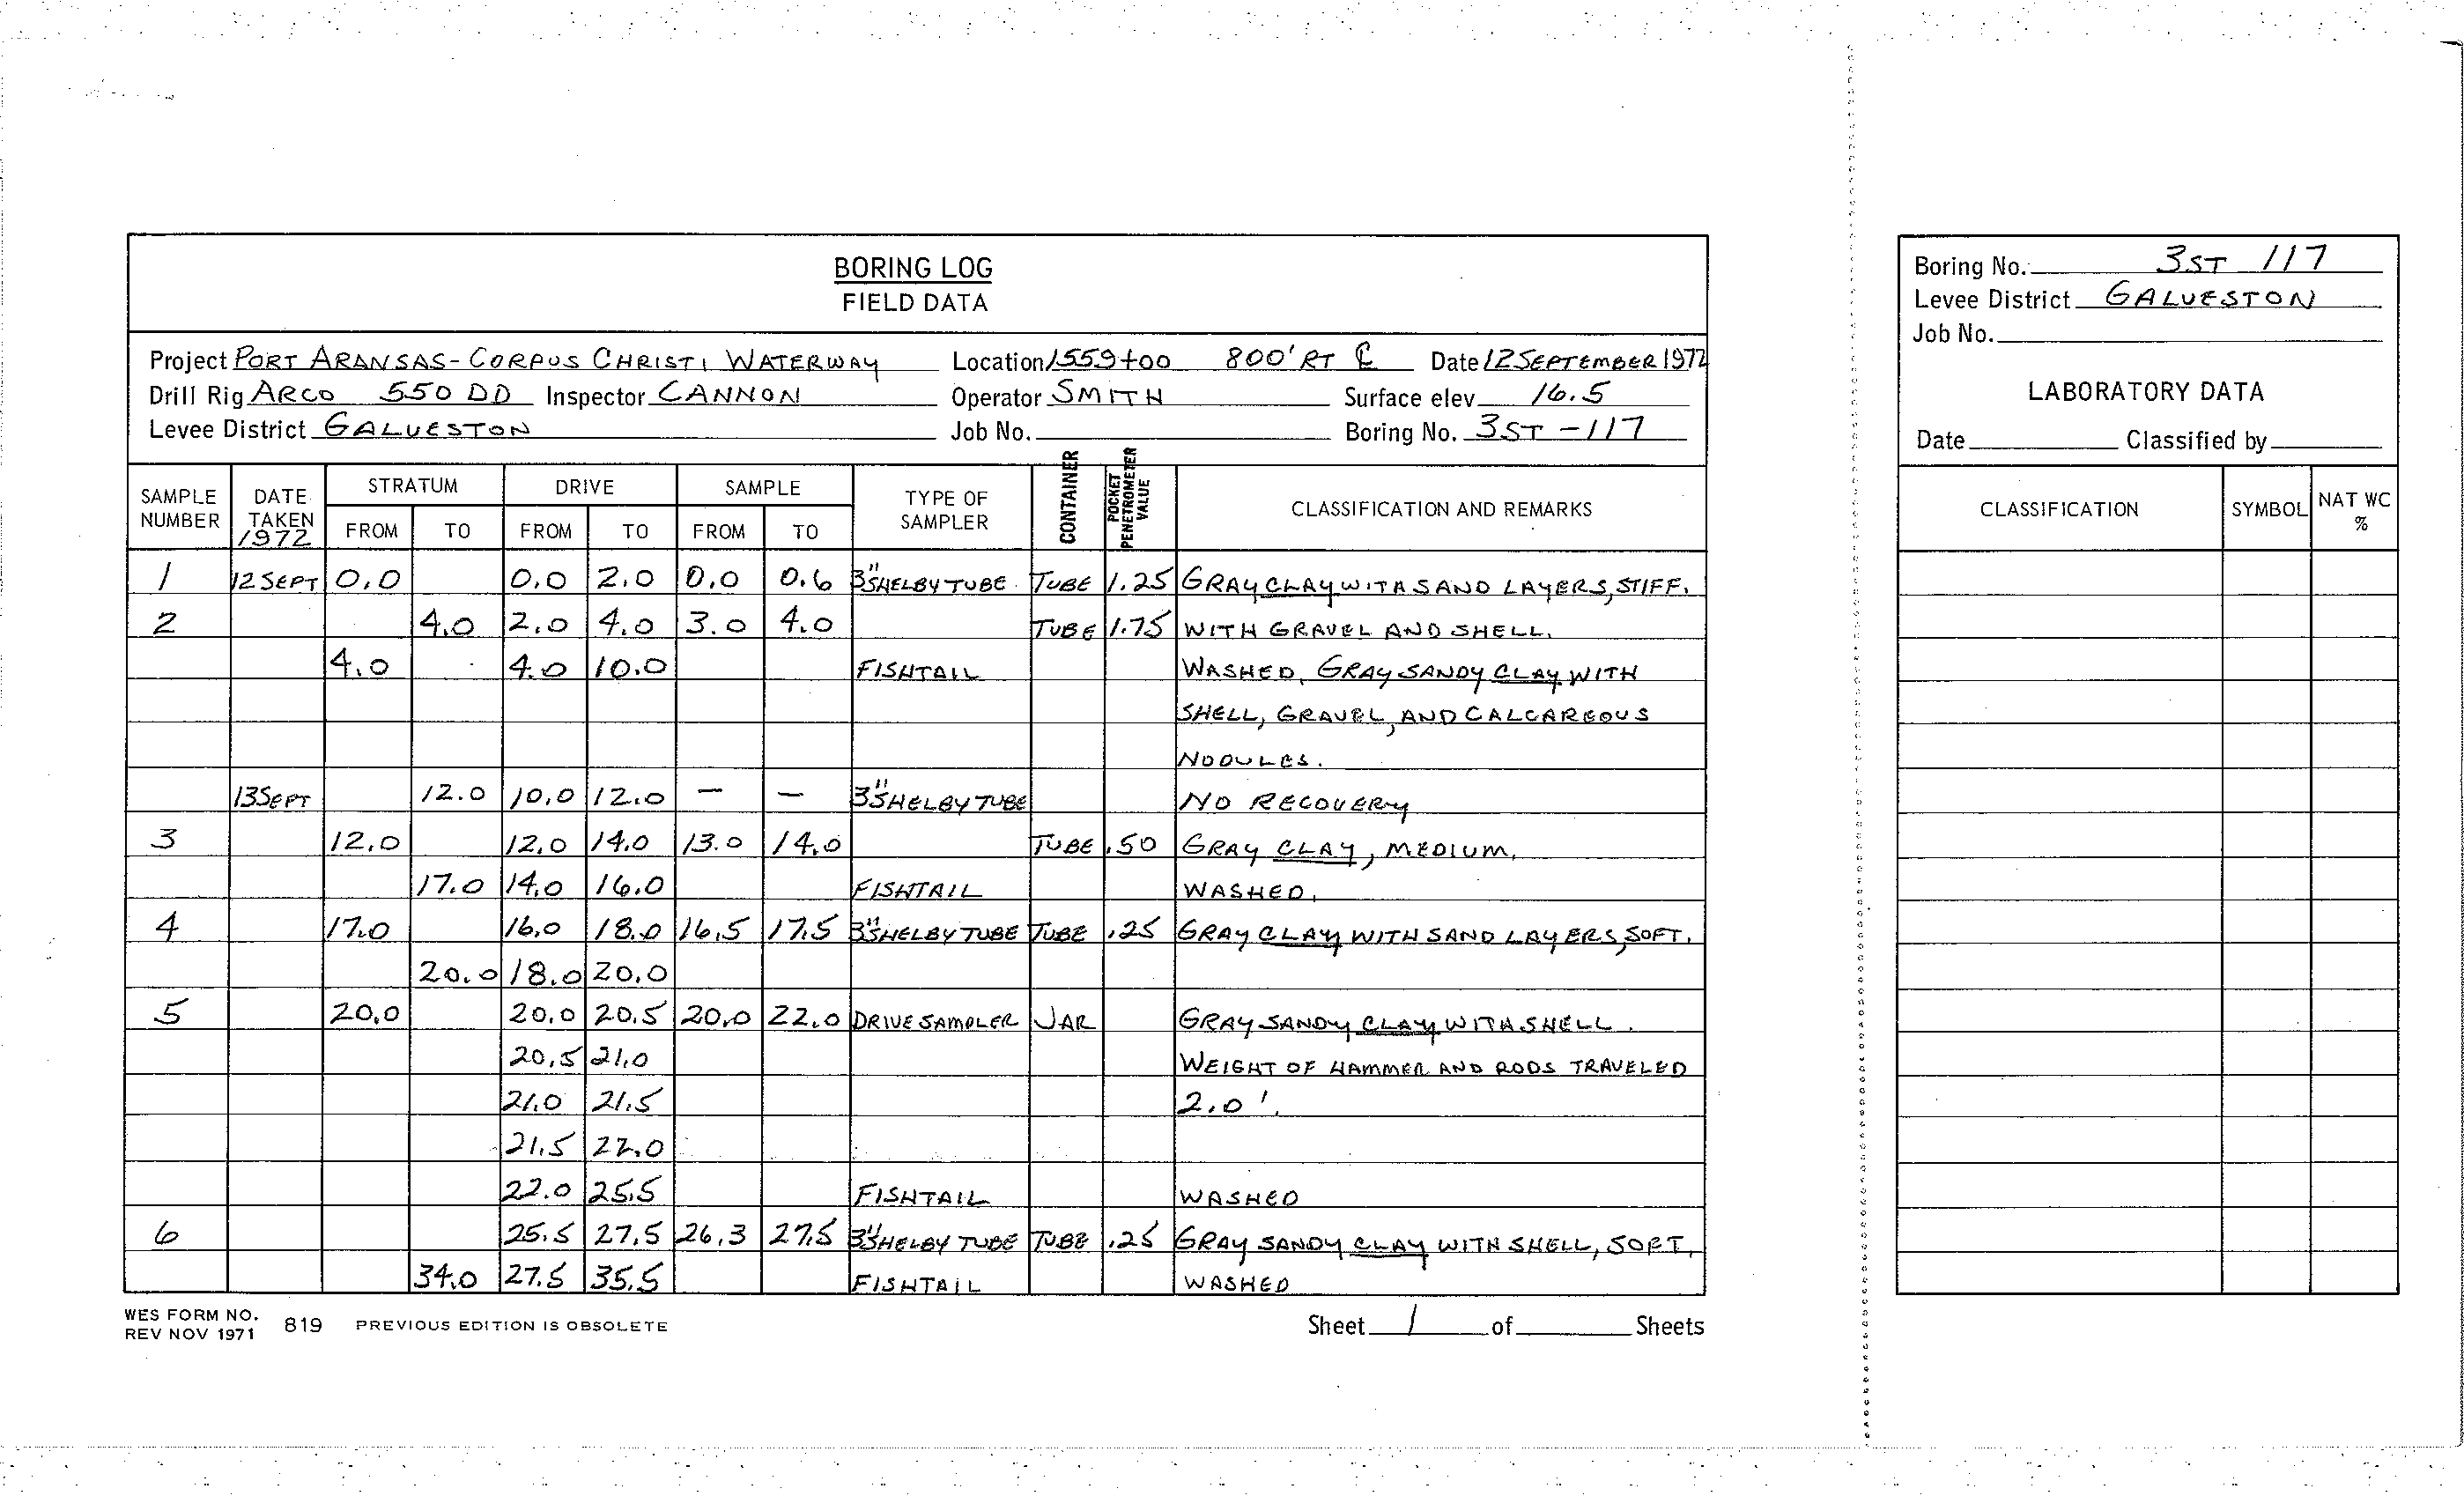 BORING LOG
FIELD DATA
Project PORT ARANSAS - CORPUS CHRISTI WATERWAY Location 1559+00 800' RT ℄ Date 12 SEPTEMBER 1972
Drill Rig ARCO 550 DD Inspector CANNON Operator SMITH Surface elev 16.5
Levee District GALVESTON Job No. Boring No. 3ST -117
SAMPLE NUMBER DATE TAKEN 1972 STRATUM FROM TO DRIVE FROM TO SAMPLE FROM TO TYPE OF SAMPLER CONTAINER POCKET PENETROMETER VALUE CLASSIFICATION AND REMARKS
1 12 SEPT 0.0 0.0 2.0 0.0 0.6 3" SHELBY TUBE TUBE 1.25 GRAY CLAY WITH SAND LAYERS, STIFF.
2 4.0 2.0 4.0 3.0 4.0 TUBE 1.75 WITH GRAVEL AND SHELL.
4.0 4.0 10.0 FISHTAIL WASHED, GRAY SANDY CLAY WITH
SHELL, GRAVEL, AND CALCAREOUS
NODULES.
13 SEPT 12.0 10.0 12.0 — — 3" SHELBY TUBE NO RECOVERY
3 12.0 12.0 14.0 13.0 14.0 TUBE .50 GRAY CLAY, MEDIUM.
17.0 14.0 16.0 FISHTAIL WASHED.
4 17.0 16.0 18.0 16.5 17.5 3" SHELBY TUBE TUBE .25 GRAY CLAY WITH SAND LAYERS, SOFT.
20.0 18.0 20.0
5 20.0 20.0 20.5 20.0 22.0 DRIVE SAMPLER JAR GRAY SANDY CLAY WITH SHELL.
20.5 21.0 WEIGHT OF HAMMER AND RODS TRAVELED
21.0 21.5 2.0'.
21.5 22.0
22.0 25.5 FISHTAIL WASHED
6 25.5 27.5 26.3 27.5 3" SHELBY TUBE TUBE .25 GRAY SANDY CLAY WITH SHELL, SOFT.
34.0 27.5 35.5 FISHTAIL WASHED
WES FORM NO. 819 PREVIOUS EDITION IS OBSOLETE
REV NOV 1971
Sheet 1 of Sheets
Boring No. 3ST 117
Levee District GALVESTON
Job No.
LABORATORY DATA
Date Classified by
CLASSIFICATION SYMBOL NAT WC %